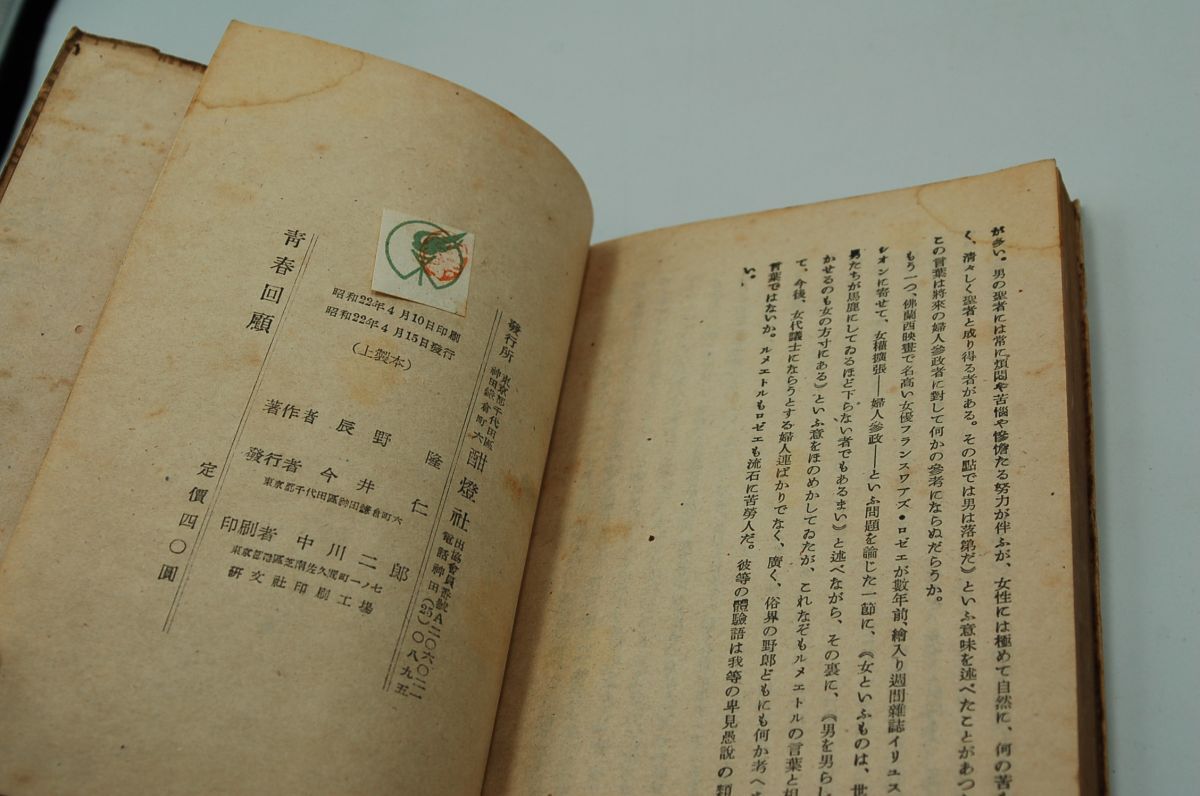 が多い。男の聖者には常に煩悶や苦惱や慘憺たる努力が伴ふが、女性には極めて自然に、何の苦
く、清々しく聖者と成り得る者がある。その點では男は落第だ》といふ意味を述べたことがあつ
この言葉は將來の婦人參政者に對して何かの參考にならぬだらうか。
もう一つ、佛蘭西映畫で名高い女優フランスワアズ・ロゼエが數年前、繪入り週間雜誌イリュス
シオンに寄せて、女權擴張――婦人參政――といふ問題を論じた一節に、《女といふものは、世
男たちが馬鹿にしてゐるほど下らない者でもあるまい》と述べながら、その裏に、《男を男らし
かせるのも女の方寸にある》といふ意をほのめかしてゐたが、これなぞもルメエトルの言葉と相
て、今後、女代議士にならうとする婦人連ばかりでなく、廣く、俗界の野郎どもにも何か考へ
言葉ではないか。ルメエトルもロゼエも流石に苦勞人だ。彼等の體驗語は我等の卑見愚說の類
い。
靑春回顧
昭和22年4月10日印刷
昭和22年4月15日發行
(上製本)
著作者 辰野隆
發行者 今井仁
東京都千代田區神田鎌倉町六
印刷者 中川二郎
東京都港區芝南佐久間町一ノ七
硏文社印刷工場
定價四〇圓
發行所
東京都千代田區
神田鎌倉町六
酣燈社
出協會員番號A二〇六〇二一
電話神田(25)〇八九五